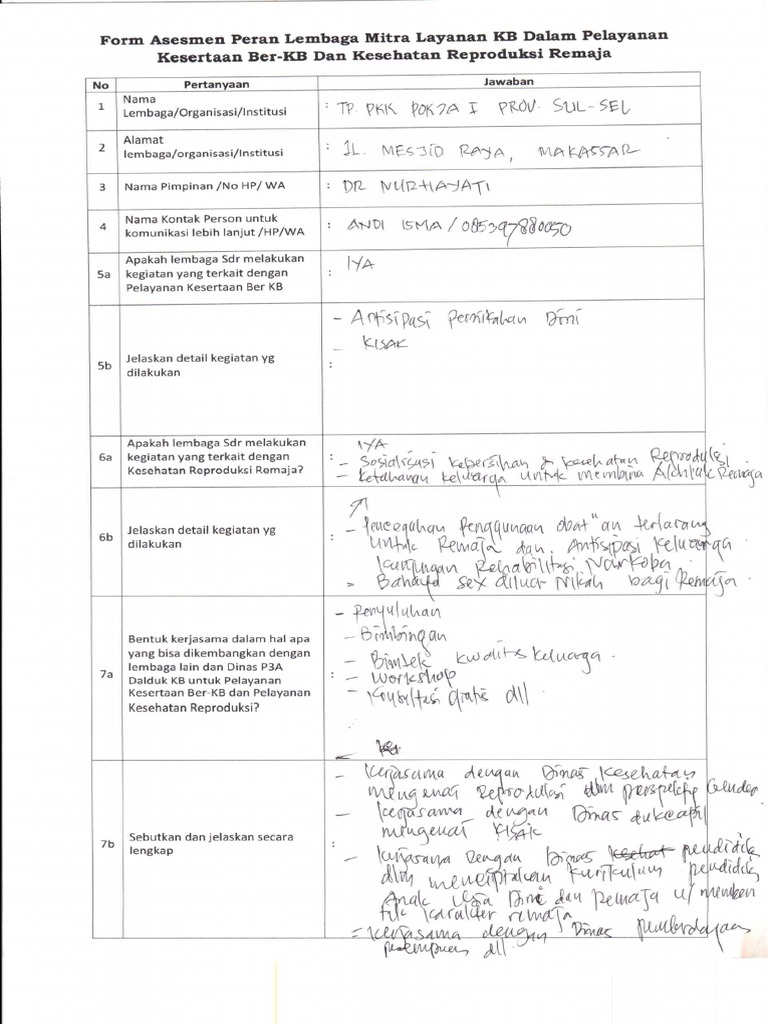 Form Asesmen Peran Lembaga Mitra Layanan KB Dalam Pelayanan
Kesertaan Ber-KB Dan Kesehatan Reproduksi Remaja
No Pertanyaan Jawaban
1 Nama
Lembaga/Organisasi/Institusi
: TP. PKK POKJA I PROV. SUL-SEL
2 Alamat
lembaga/organisasi/Institusi
: JL. MESJID RAYA, MAKASSAR
3 Nama Pimpinan /No HP/ WA : DR NURHAYATI
4 Nama Kontak Person untuk
komunikasi lebih lanjut /HP/WA
: ANDI ISMA / 085397880050
5a Apakah lembaga Sdr melakukan
kegiatan yang terkait dengan
Pelayanan Kesertaan Ber KB
: IYA
5b Jelaskan detail kegiatan yg
dilakukan
:
- Antisipasi Pernikahan Dini
- KISAK
6a Apakah lembaga Sdr melakukan
kegiatan yang terkait dengan
Kesehatan Reproduksi Remaja?
: IYA
- Sosialisasi kebersihan & kesehatan Reproduksi
- Ketahanan keluarga untuk membina Akhlak Remaja
6b Jelaskan detail kegiatan yg
dilakukan
:
- Pencegahan Penggunaan obat"an terlarang
untuk Remaja dan Antisipasi Keluarga
kunjungan Rehabilitasi Narkoba
= Bahaya sex diluar Nikah bagi Remaja
7a Bentuk kerjasama dalam hal apa
yang bisa dikembangkan dengan
lembaga lain dan Dinas P3A
Dalduk KB untuk Pelayanan
Kesertaan Ber-KB dan Pelayanan
Kesehatan Reproduksi?
:
- Penyuluhan
- Bimbingan
- Bimtek kwalits keluarga
- Workshop
- Konsultasi gratis dll
7b Sebutkan dan jelaskan secara
lengkap
:
- Kerjasama dengan Dinas Kesehatan
mengenai Reproduksi dlm perspektif Gender
- Kerjasama dengan Dinas dukcapil
mengenai KISAK
- Kerjasama dengan Dinas pendidik
dlm menciptakan kurikulum pendidik
Anak Usia Dini dan Remaja u/ memben
tuk karakter remaja
= Kerjasama dengan Dinas pemberdayaan
perempuan dll.